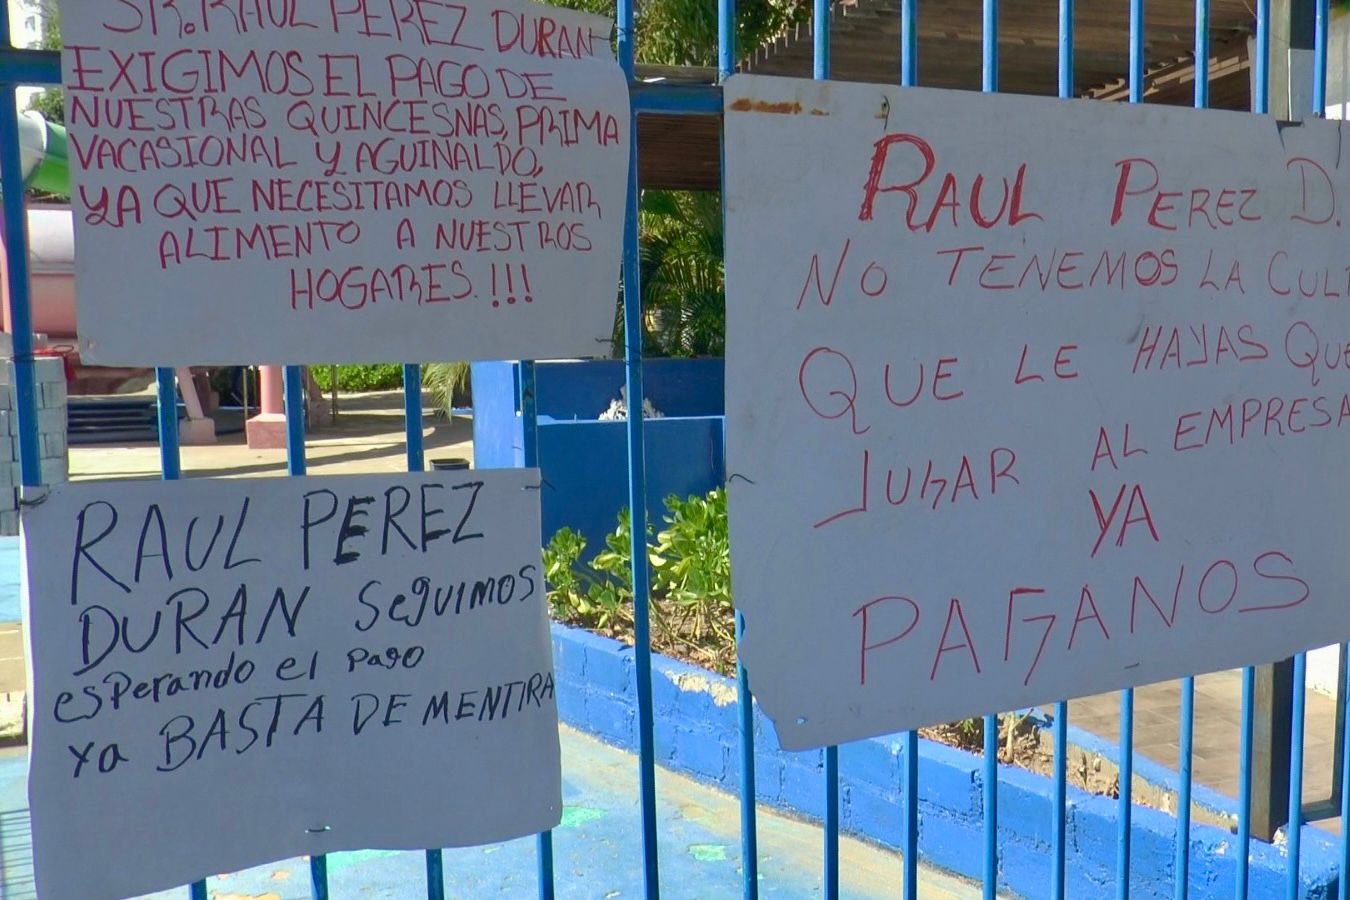 SR. RAUL PEREZ DURAN
EXIGIMOS EL PAGO DE
NUESTRAS QUINCESNAS, PRIMA
VACASIONAL Y AGUINALDO,
YA QUE NECESITAMOS LLEVAR
ALIMENTO A NUESTROS
HOGARES. !!!
RAUL PEREZ
DURAN SeguIMOS
esperando el Pago
Ya BASTA DE MENTIRA
RAUL PEREZ D.
NO TENEMOS LA
QUE LE HAYAS QUE
JUGAR AL EMPRESA
YA
PAGANOS